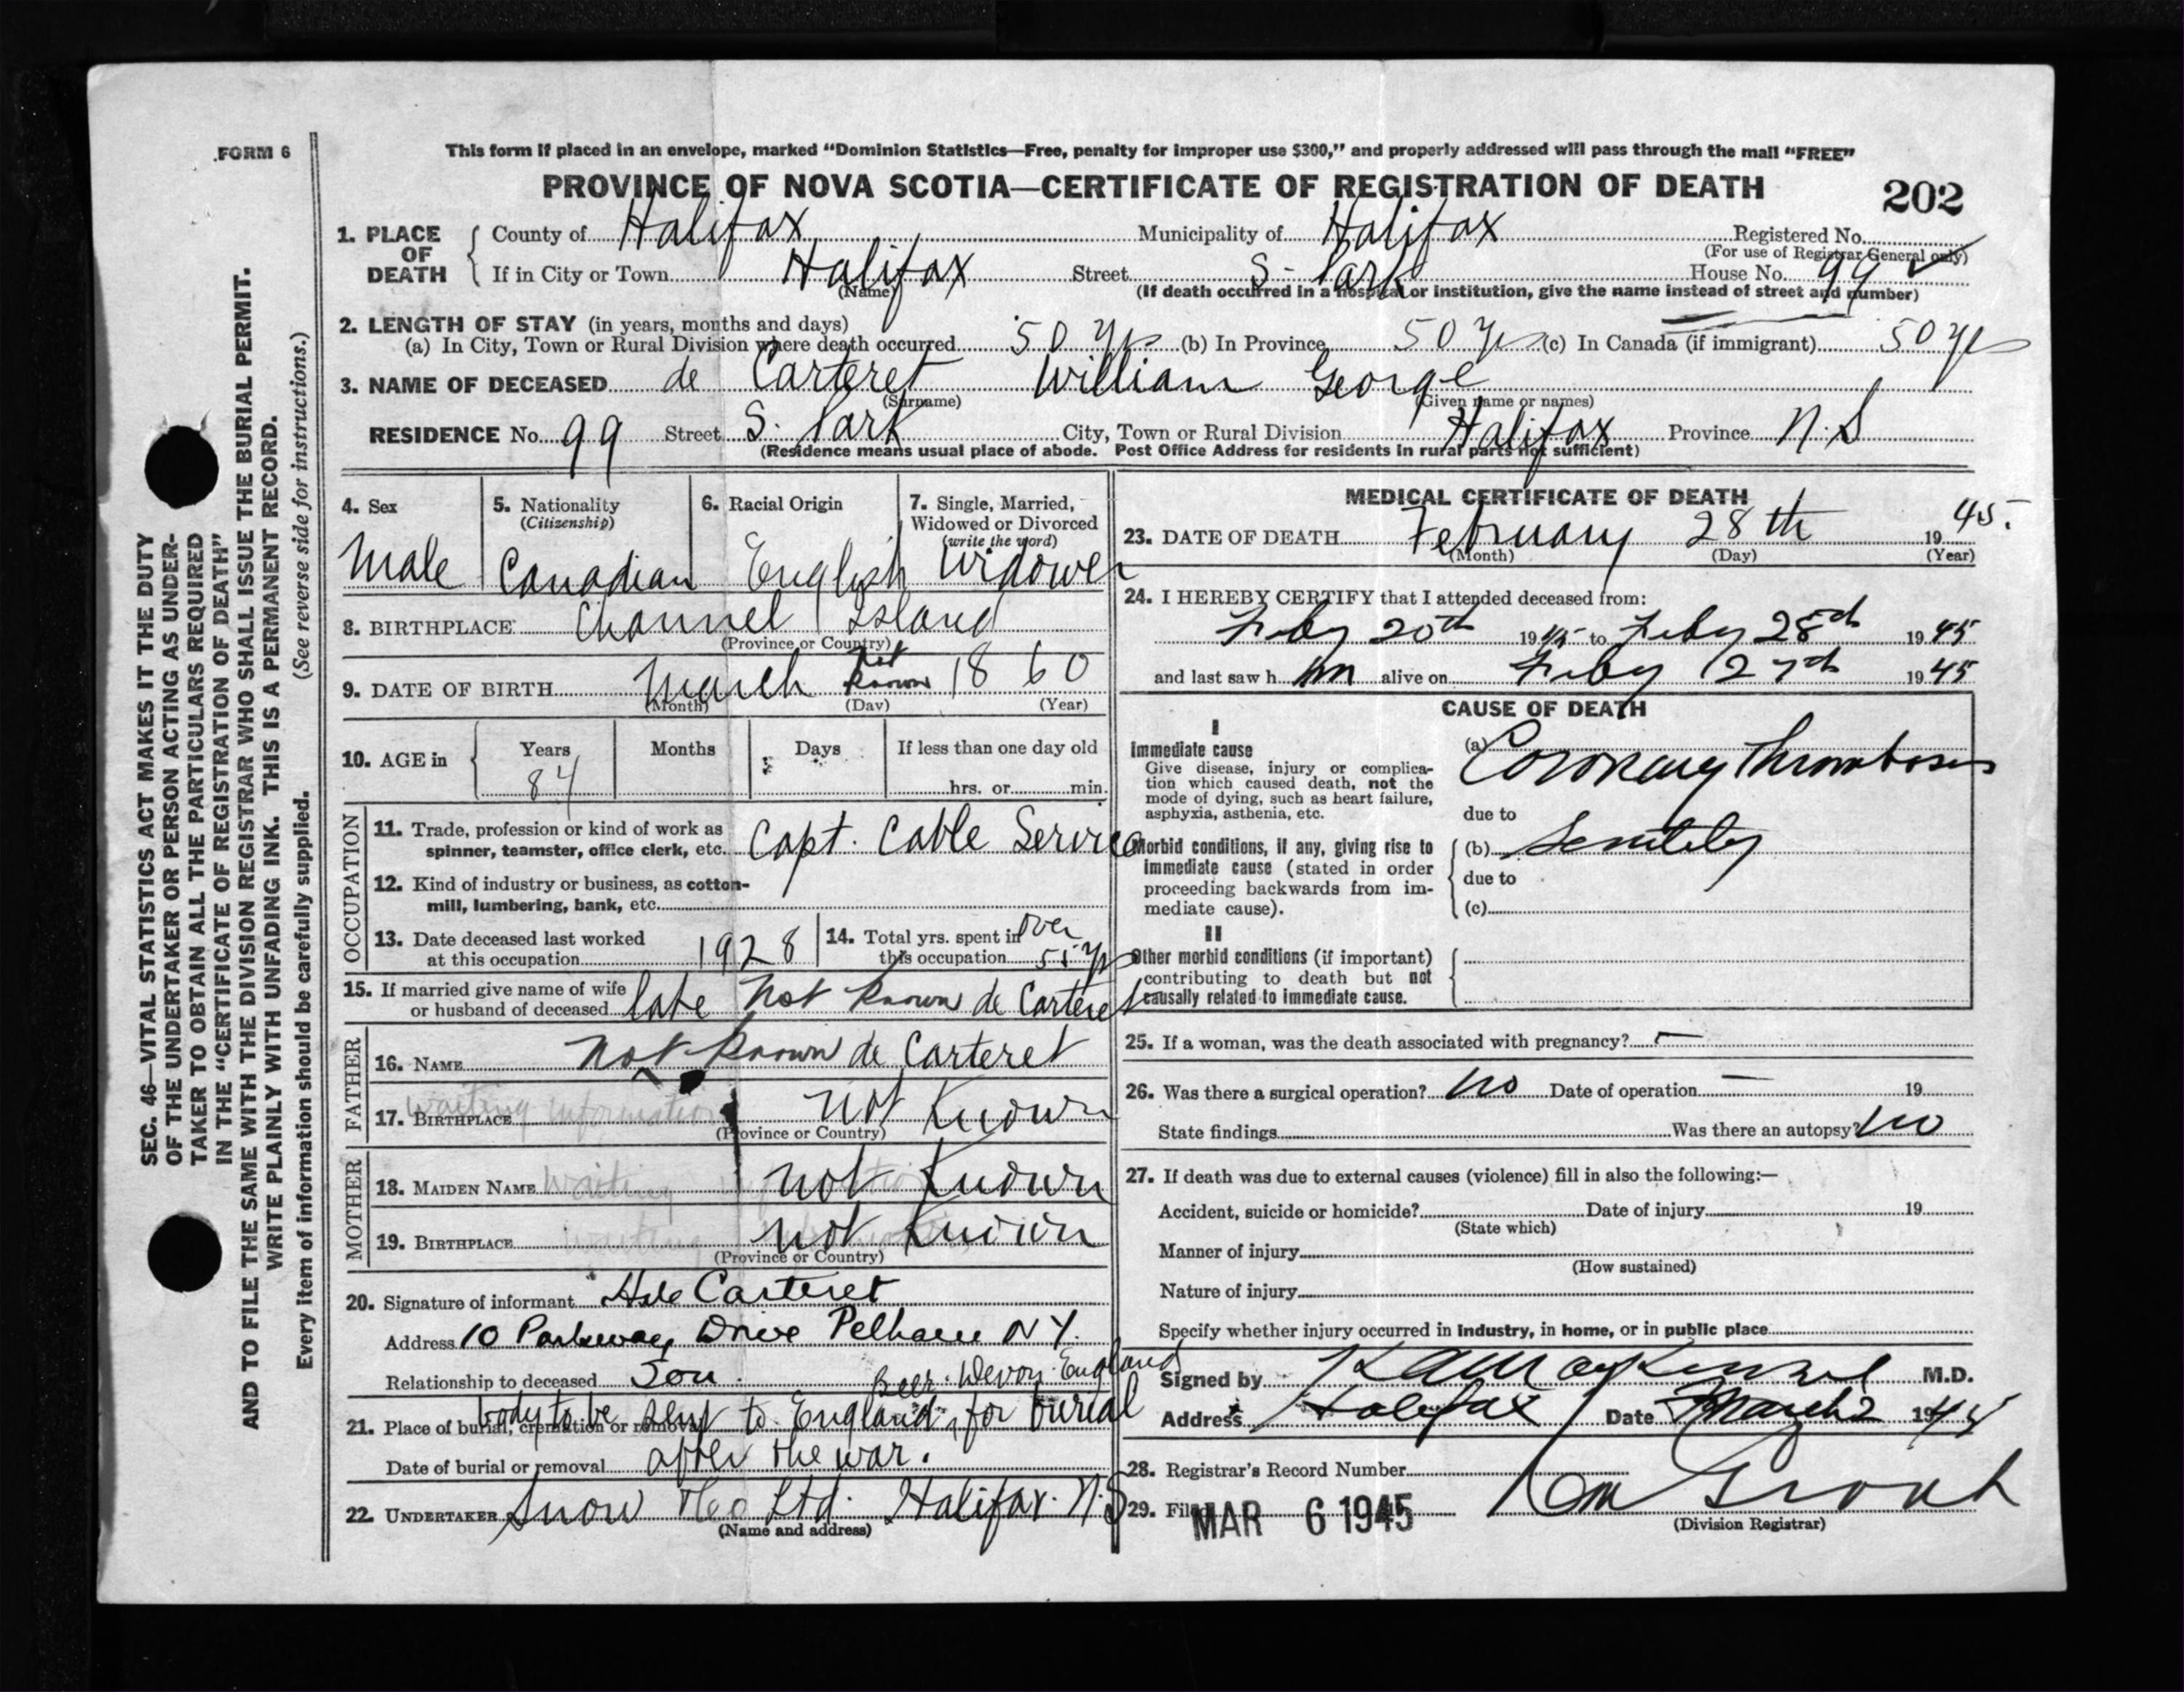 FORM 6
This form if placed in an envelope, marked “Dominion Statistics—Free, penalty for improper use $300,” and properly addressed will pass through the mail “FREE”
PROVINCE OF NOVA SCOTIA—CERTIFICATE OF REGISTRATION OF DEATH
202
1. PLACE OF DEATH County of Halifax Municipality of Halifax Registered No.
(For use of Registrar General only)
If in City or Town Halifax Street S. Park House No. 99
(Name) (If death occurred in a hospital or institution, give the name instead of street and number)
2. LENGTH OF STAY (in years, months and days)
(a) In City, Town or Rural Division where death occurred 50 yrs (b) In Province 50 yrs (c) In Canada (if immigrant) 50 yrs
3. NAME OF DECEASED de Carteret William George
(Surname) (Given name or names)
RESIDENCE No. 99 Street S. Park City, Town or Rural Division Halifax Province N.S
(Residence means usual place of abode. Post Office Address for residents in rural parts not sufficient)
4. Sex
Male
5. Nationality
(Citizenship)
Canadian
6. Racial Origin
English
7. Single, Married,
Widowed or Divorced
(write the word)
Widower
8. BIRTHPLACE Channel Island
(Province or Country)
9. DATE OF BIRTH March Not known 1860
(Month) (Day) (Year)
10. AGE in Years Months Days If less than one day old
84 hrs. or min.
OCCUPATION
11. Trade, profession or kind of work as
spinner, teamster, office clerk, etc. Capt. Cable Service
12. Kind of industry or business, as cotton-
mill, lumbering, bank, etc.
13. Date deceased last worked
at this occupation 1928
14. Total yrs. spent in
this occupation over 55 yrs
15. If married give name of wife
or husband of deceased late Not Known de Carteret
FATHER
16. NAME Not Known de Carteret
17. BIRTHPLACE waiting information Not Known
(Province or Country)
MOTHER
18. MAIDEN NAME waiting Not Known
19. BIRTHPLACE waiting Not Known
(Province or Country)
20. Signature of informant H de Carteret
Address 10 Parkway Drive Pelham N Y.
Relationship to deceased Son.
Beer. Devon. England
21. Place of burial, cremation or removal body to be sent to England, for burial
Date of burial or removal after the war.
22. UNDERTAKER Snow & Co Ltd. Halifax. N.S
(Name and address)
MEDICAL CERTIFICATE OF DEATH
23. DATE OF DEATH February 28th 1945.
(Month) (Day) (Year)
24. I HEREBY CERTIFY that I attended deceased from:
Feby 20th 1945 to Feby 28th 1945
and last saw him alive on Feby 27th 1945
CAUSE OF DEATH
I
Immediate cause
Give disease, injury or complica-
tion which caused death, not the
mode of dying, such as heart failure,
asphyxia, asthenia, etc.
(a) Coronary Thrombosis
due to
Morbid conditions, if any, giving rise to
immediate cause (stated in order
proceeding backwards from im-
mediate cause).
(b) Senility
due to
(c)
II
Other morbid conditions (if important)
contributing to death but not
causally related to immediate cause.
25. If a woman, was the death associated with pregnancy? —
26. Was there a surgical operation? No Date of operation — 19
State findings Was there an autopsy? No
27. If death was due to external causes (violence) fill in also the following:—
Accident, suicide or homicide? Date of injury 19
(State which)
Manner of injury
(How sustained)
Nature of injury
Specify whether injury occurred in industry, in home, or in public place
Signed by M.D.
Address Halifax Date March 2 1945
28. Registrar's Record Number
29. Filed MAR 6 1945
(Division Registrar)
SEC. 46—VITAL STATISTICS ACT MAKES IT THE DUTY
OF THE UNDERTAKER OR PERSON ACTING AS UNDER-
TAKER TO OBTAIN ALL THE PARTICULARS REQUIRED
IN THE “CERTIFICATE OF REGISTRATION OF DEATH”
AND TO FILE THE SAME WITH THE DIVISION REGISTRAR WHO SHALL ISSUE THE BURIAL PERMIT.
WRITE PLAINLY WITH UNFADING INK. THIS IS A PERMANENT RECORD.
Every item of information should be carefully supplied. (See reverse side for instructions.)